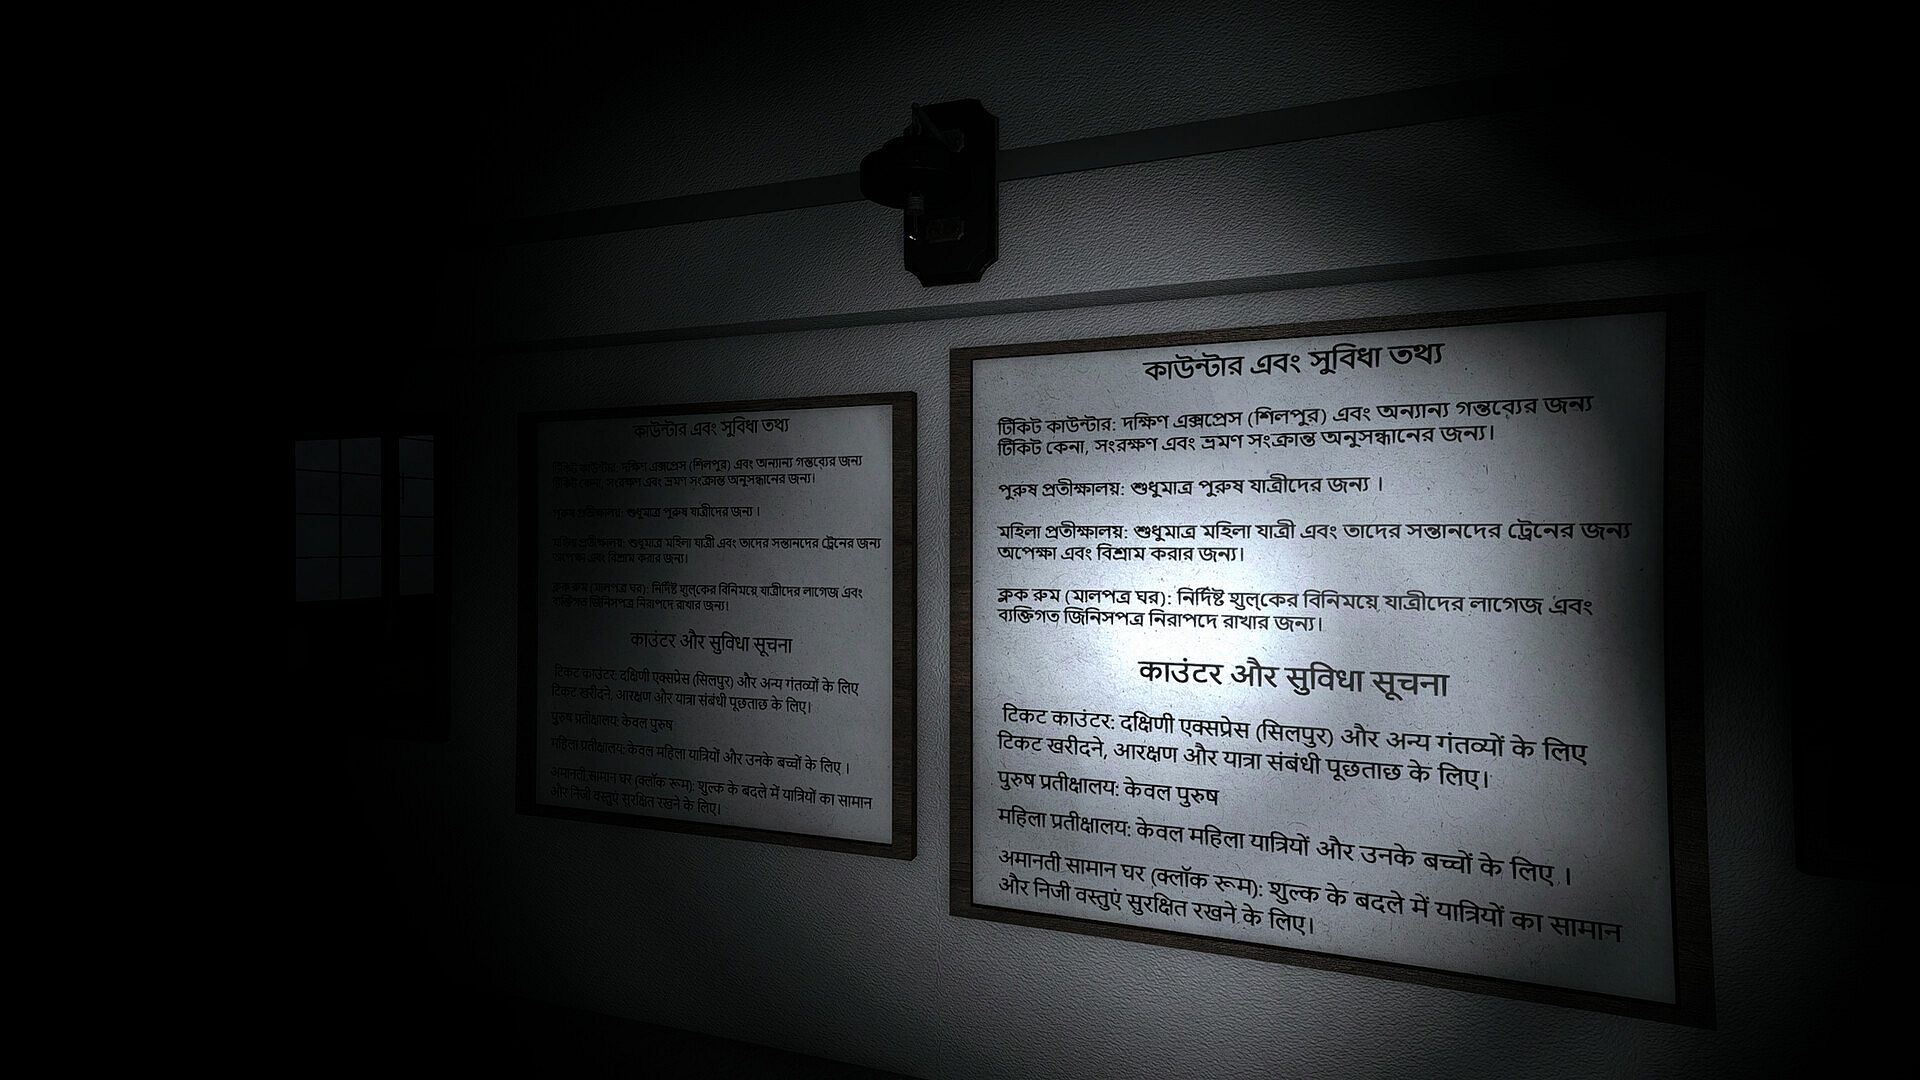 কাউন্টার এবং সুবিধা তথ্য
টিকিট কাউন্টার: দক্ষিণ এক্সপ্রেস (শিলপুর) এবং অন্যান্য গন্তব্যের জন্য
টিকিট কেনা, সংরক্ষণ এবং ভ্রমণ সংক্রান্ত অনুসন্ধানের জন্য।
পুরুষ প্রতীক্ষালয়: শুধুমাত্র পুরুষ যাত্রীদের জন্য ।
মহিলা প্রতীক্ষালয়: শুধুমাত্র মহিলা যাত্রী এবং তাদের সন্তানদের ট্রেনের জন্য
অপেক্ষা এবং বিশ্রাম করার জন্য।
ক্লক রুম (মালপত্র ঘর): নির্দিষ্ট শুল্কের বিনিময়ে যাত্রীদের লাগেজ এবং
ব্যক্তিগত জিনিসপত্র নিরাপদে রাখার জন্য।
काउंटर और सुविधा सूचना
टिकट काउंटर: दक्षिणी एक्सप्रेस (सिलपुर) और अन्य गंतव्यों के लिए
टिकट खरीदने, आरक्षण और यात्रा संबंधी पूछताछ के लिए।
पुरुष प्रतीक्षालय: केवल पुरुष
महिला प्रतीक्षालय: केवल महिला यात्रियों और उनके बच्चों के लिए ।
अमानती सामान घर (क्लॉक रूम): शुल्क के बदले में यात्रियों का सामान
और निजी वस्तुएं सुरक्षित रखने के लिए।
কাউন্টার এবং সুবিধা তথ্য
টিকিট কাউন্টার: দক্ষিণ এক্সপ্রেস (শিলপুর) এবং অন্যান্য গন্তব্যের জন্য
টিকিট কেনা, সংরক্ষণ এবং ভ্রমণ সংক্রান্ত অনুসন্ধানের জন্য।
পুরুষ প্রতীক্ষালয়: শুধুমাত্র পুরুষ যাত্রীদের জন্য ।
মহিলা প্রতীক্ষালয়: শুধুমাত্র মহিলা যাত্রী এবং তাদের সন্তানদের ট্রেনের জন্য
অপেক্ষা এবং বিশ্রাম করার জন্য।
ক্লক রুম (মালপত্র ঘর): নির্দিষ্ট শুল্কের বিনিময়ে যাত্রীদের লাগেজ এবং
ব্যক্তিগত জিনিসপত্র নিরাপদে রাখার জন্য।
काउंटर और सुविधा सूचना
टिकट काउंटर: दक्षिणी एक्सप्रेस (सिलपुर) और अन्य गंतव्यों के लिए
टिकट खरीदने, आरक्षण और यात्रा संबंधी पूछताछ के लिए।
पुरुष प्रतीक्षालय: केवल पुरुष
महिला प्रतीक्षालय: केवल महिला यात्रियों और उनके बच्चों के लिए ।
अमानती सामान घर (क्लॉक रूम): शुल्क के बदले में यात्रियों का सामान
और निजी वस्तुएं सुरक्षित रखने के लिए।